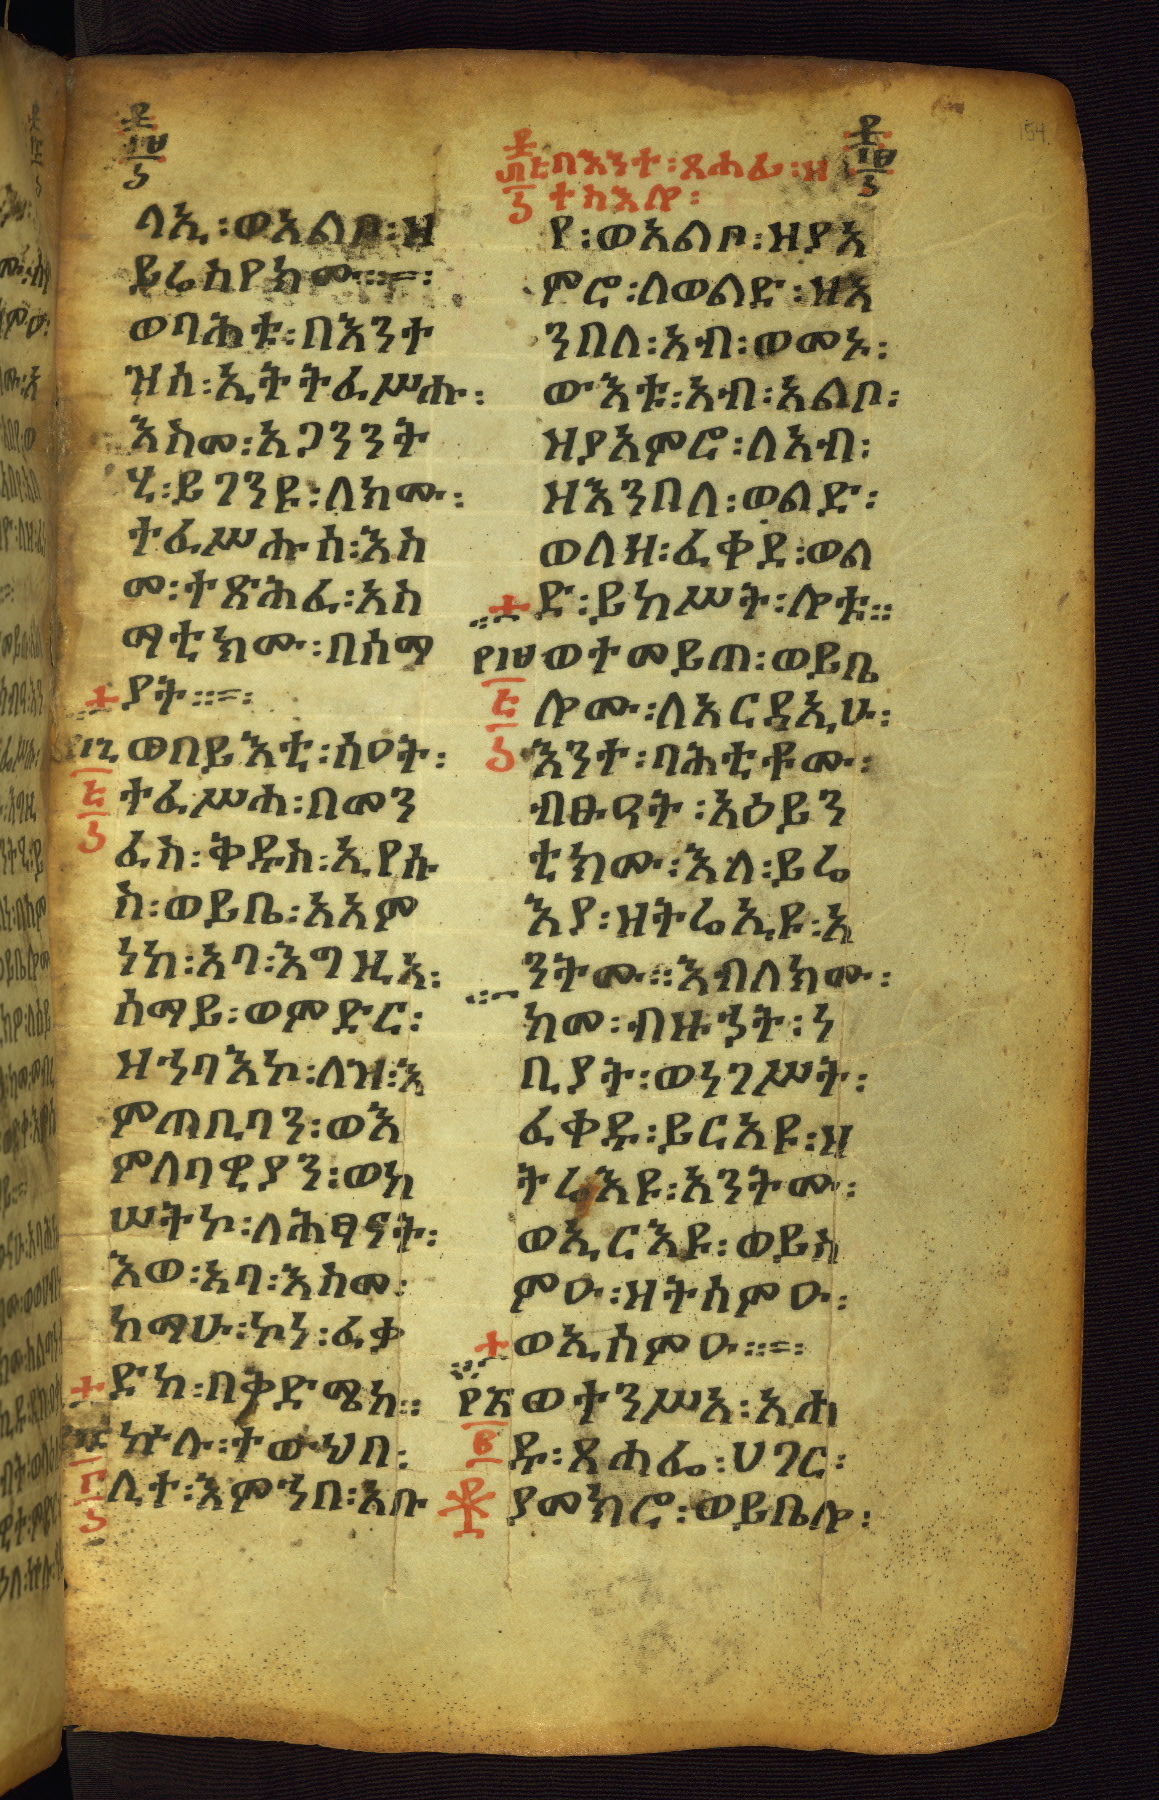 ፶
፲፱
፫
ላኢ፡ወአልቦ፡ዘ
ይሬስየክሙ፡፡=፡
ወባሕቱ፡በእንተ
ዝሰ፡ኢትትፈሥሑ፡
እስመ፡አጋንንት
ሂ፡ይገንዩ፡ለክሙ፡
ተፈሥሑሰ፡እስ
መ፡ተጽሕፈ፡አስ
ማቲክሙ፡በሰማ
ያት፡፡=፡
ወበይእቲ፡ሰዐት፡
ተፈሥሐ፡በመን
ፈስ፡ቅዱስ፡ኢየሱ
ስ፡ወይቤ፡አአም
ነከ፡አባ፡እግዚአ፡
ሰማይ፡ወምድር፡
ዘኀባእኮ፡ለዝ፡እ
ምጠቢባን፡ወእ
ምለባዊያን፡ወከ
ሠትኮ፡ለሕፃናት፡
እወ፡አባ፡እስመ፡
ከማሁ፡ኮነ፡ፈቃ
ድከ፡በቅድሜከ፡፡
ኵሉ፡ተውህበ፡
ሊተ፡እምኀበ፡አቡ
በእንተ፡ጸሐፊ፡ዘ
ተስእሎ፡
፶
፲፱
፫
የ፡ወአልቦ፡ዘያአ
ምሮ፡ለወልድ፡ዘእ
ንበለ፡አብ፡ወመኑ፡
ውእቱ፡አብ፡አልቦ፡
ዘያአምሮ፡ለአብ፡
ዘእንበለ፡ወልድ፡
ወለዘ፡ፈቀደ፡ወል
ድ፡ይከሥት፡ሎቱ፡፡
ወተመይጠ፡ወይቤ
ሎሙ፡ለአርዳኢሁ፡
እንተ፡ባሕቲቶሙ፡
ብፁዓት፡አዕይን
ቲክሙ፡እለ፡ይሬ
እያ፡ዘትሬኢዩ፡አ
ንትሙ፡፡እብለክሙ፡
ከመ፡ብዙኀት፡ነ
ቢያት፡ወነገሥት፡
ፈቀዱ፡ይርአዩ፡ዘ
ትሬእዩ፡አንትሙ፡
ወኢርእዩ፡ወይስ
ምዑ፡ዘትሰምዑ፡
ወኢሰምዑ፡፡=፡
ወተንሥአ፡አሐ
ዱ፡ጸሐፌ፡ሀገር፡
ያመክሮ፡ወይቤሎ፡